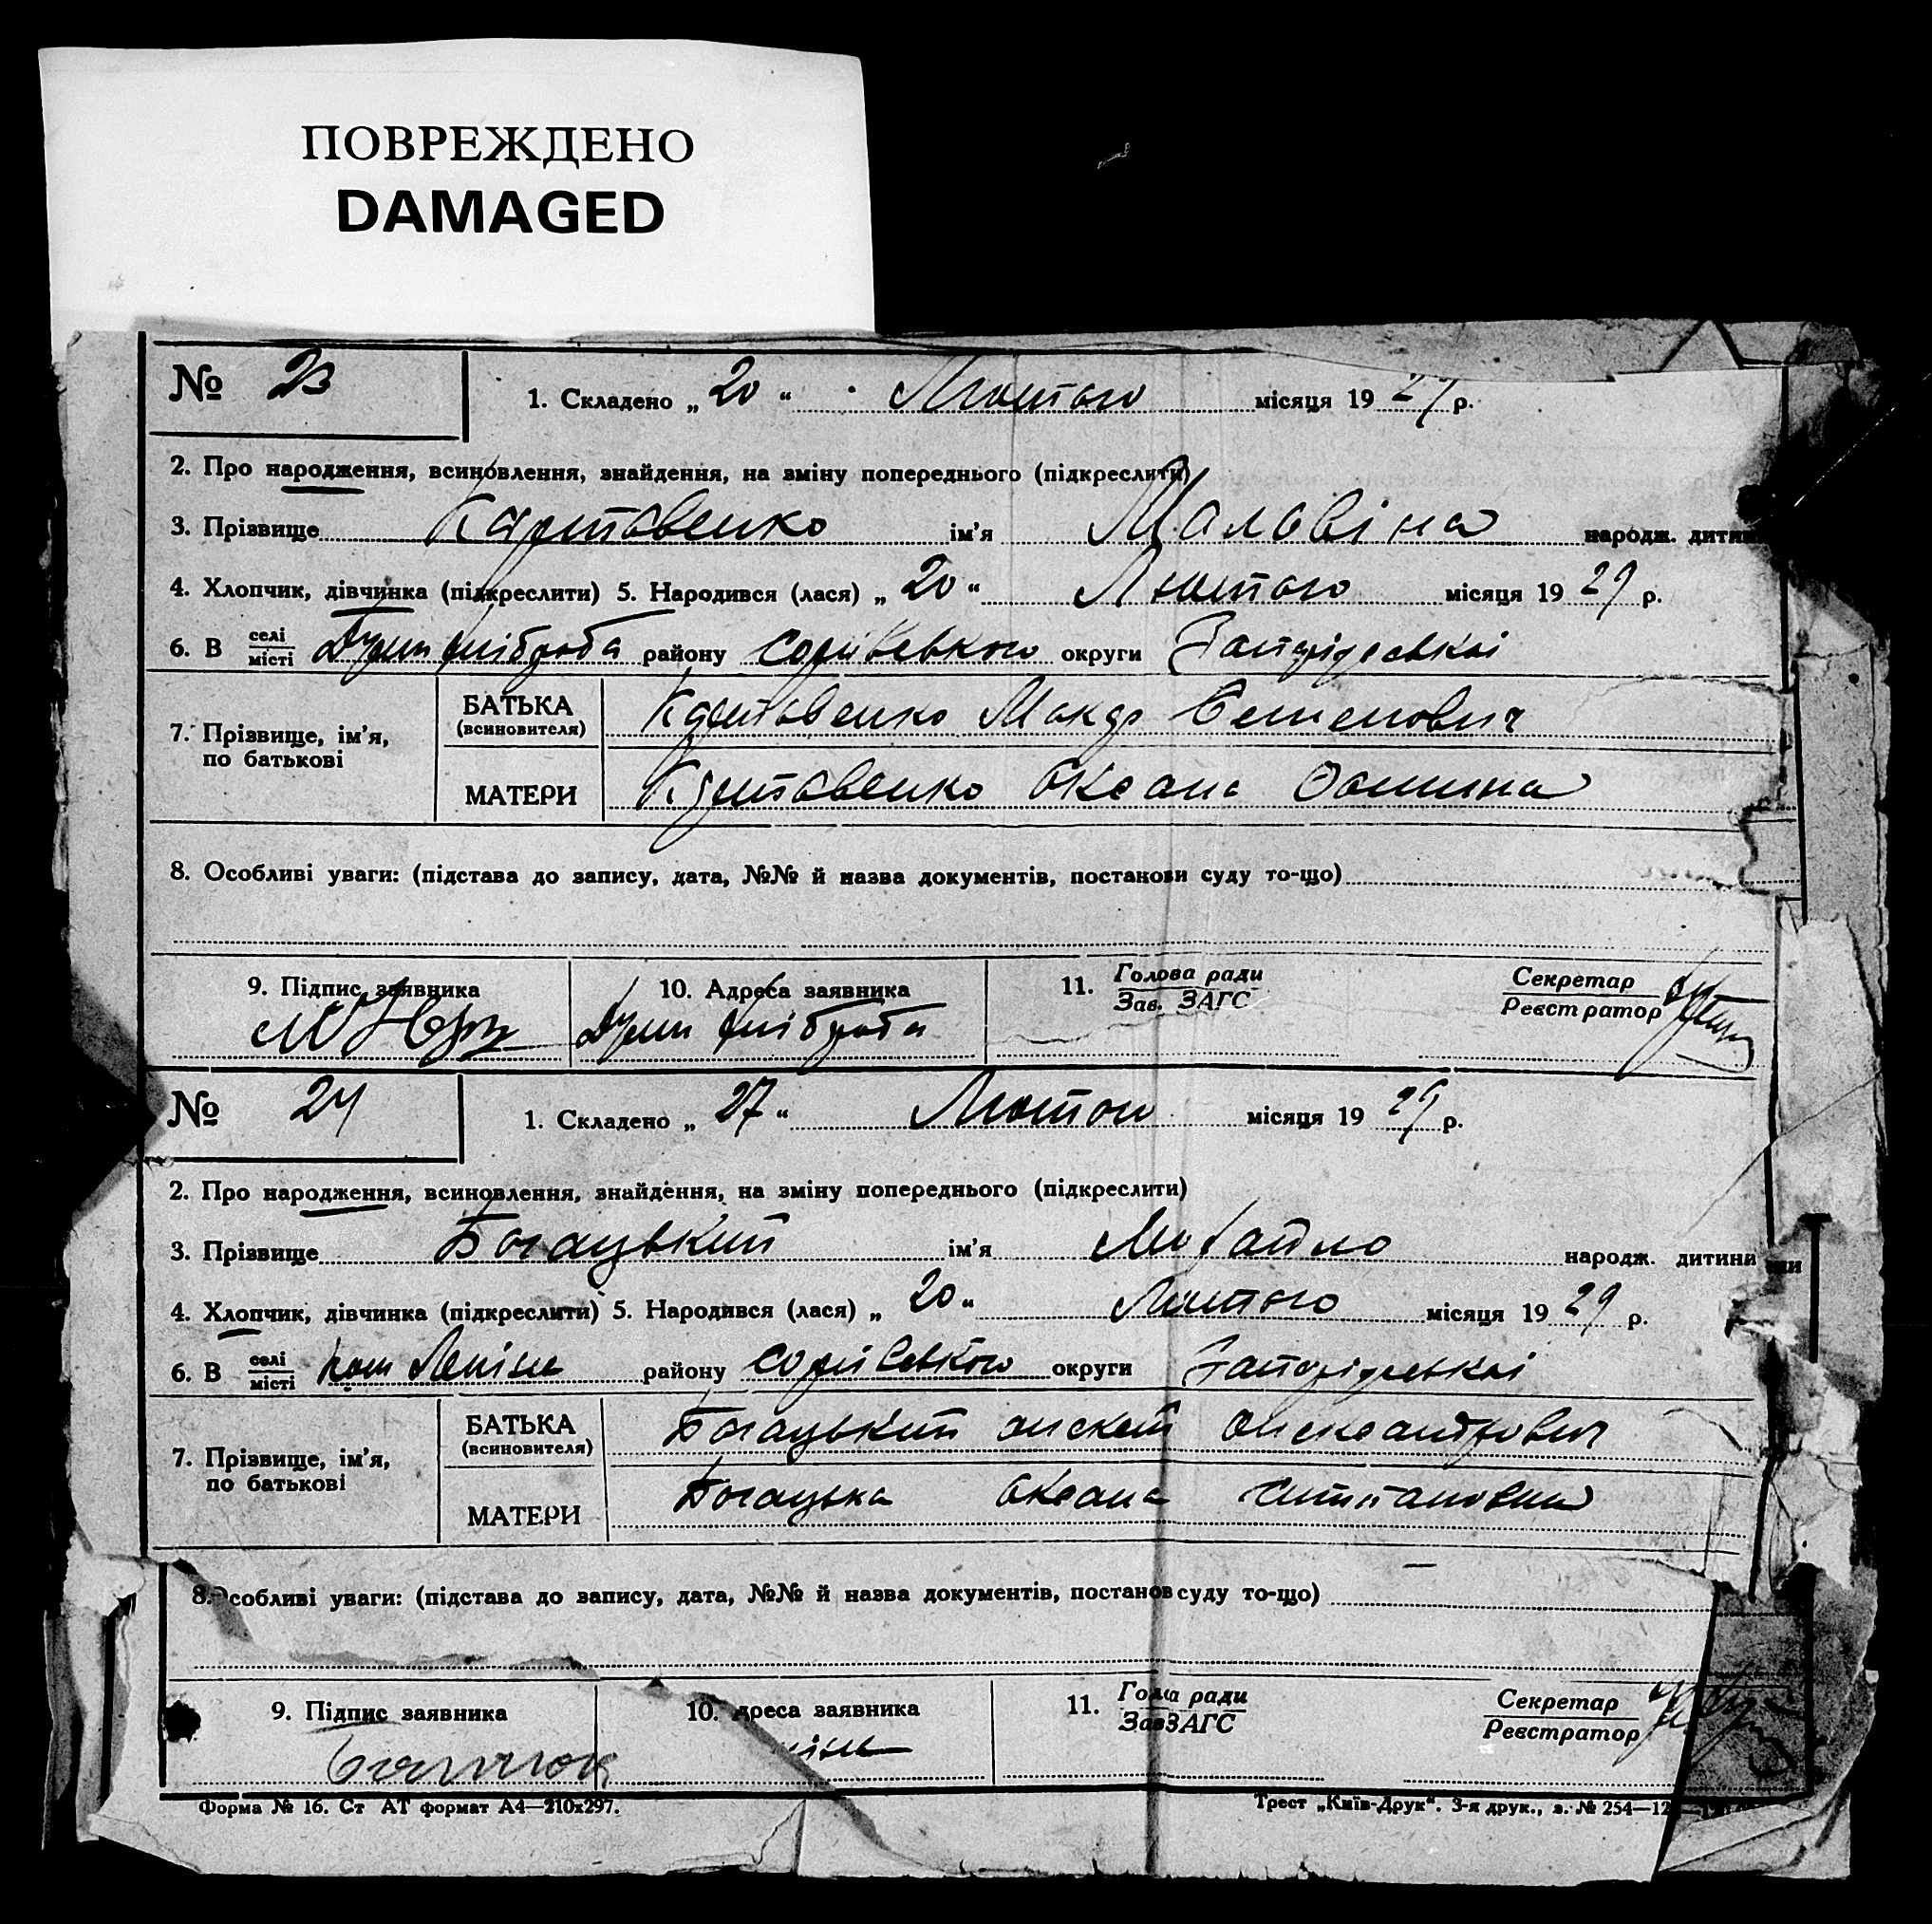 ПОВРЕЖДЕНО
DAMAGED
№ 23
1. Складено „ 20 “ Лютого місяця 19 29 р.
2. Про народження, всиновлення, знайдення, на зміну попереднього (підкреслити)
3. Прізвище Картавенко ім'я Мальвіна народж. дитини
4. Хлопчик, дівчинка (підкреслити) 5. Народився (лася) „ 20 “ Лютого місяця 19 29 р.
6. В селі/місті району Софіївського округи Запоріжської
7. Прізвище, ім'я, по батькові
БАТЬКА (всиновителя) Картавенко Макар Семенович
МАТЕРИ Картавенко Оксана
8. Особливі уваги: (підстава до запису, дата, №№ й назва документів, постанови суду то-що)
9. Підпис заявника
10. Адреса заявника
11. Голова ради/Зав. ЗАГС Секретар/Реєстратор
№ 24
1. Складено „ 27 “ Лютого місяця 19 29 р.
2. Про народження, всиновлення, знайдення, на зміну попереднього (підкреслити)
3. Прізвище Богацький ім'я Михайло народж. дитини
4. Хлопчик, дівчинка (підкреслити) 5. Народився (лася) „ 20 “ Лютого місяця 19 29 р.
6. В селі/місті ком Леніна району Софіївського округи Запоріжської
7. Прізвище, ім'я, по батькові
БАТЬКА (всиновителя) Богацький Олександрович
МАТЕРИ Богацька Оксана
8. Особливі уваги: (підстава до запису, дата, №№ й назва документів, постанов суду то-що)
9. Підпис заявника
10. дреса заявника
11. Голова ради/Зав ЗАГС Секретар/Реєстратор
Форма № 16. Ст АТ формат А4—210x297.
Трест „Київ-Друк“. 3-я друк., з. № 254—12